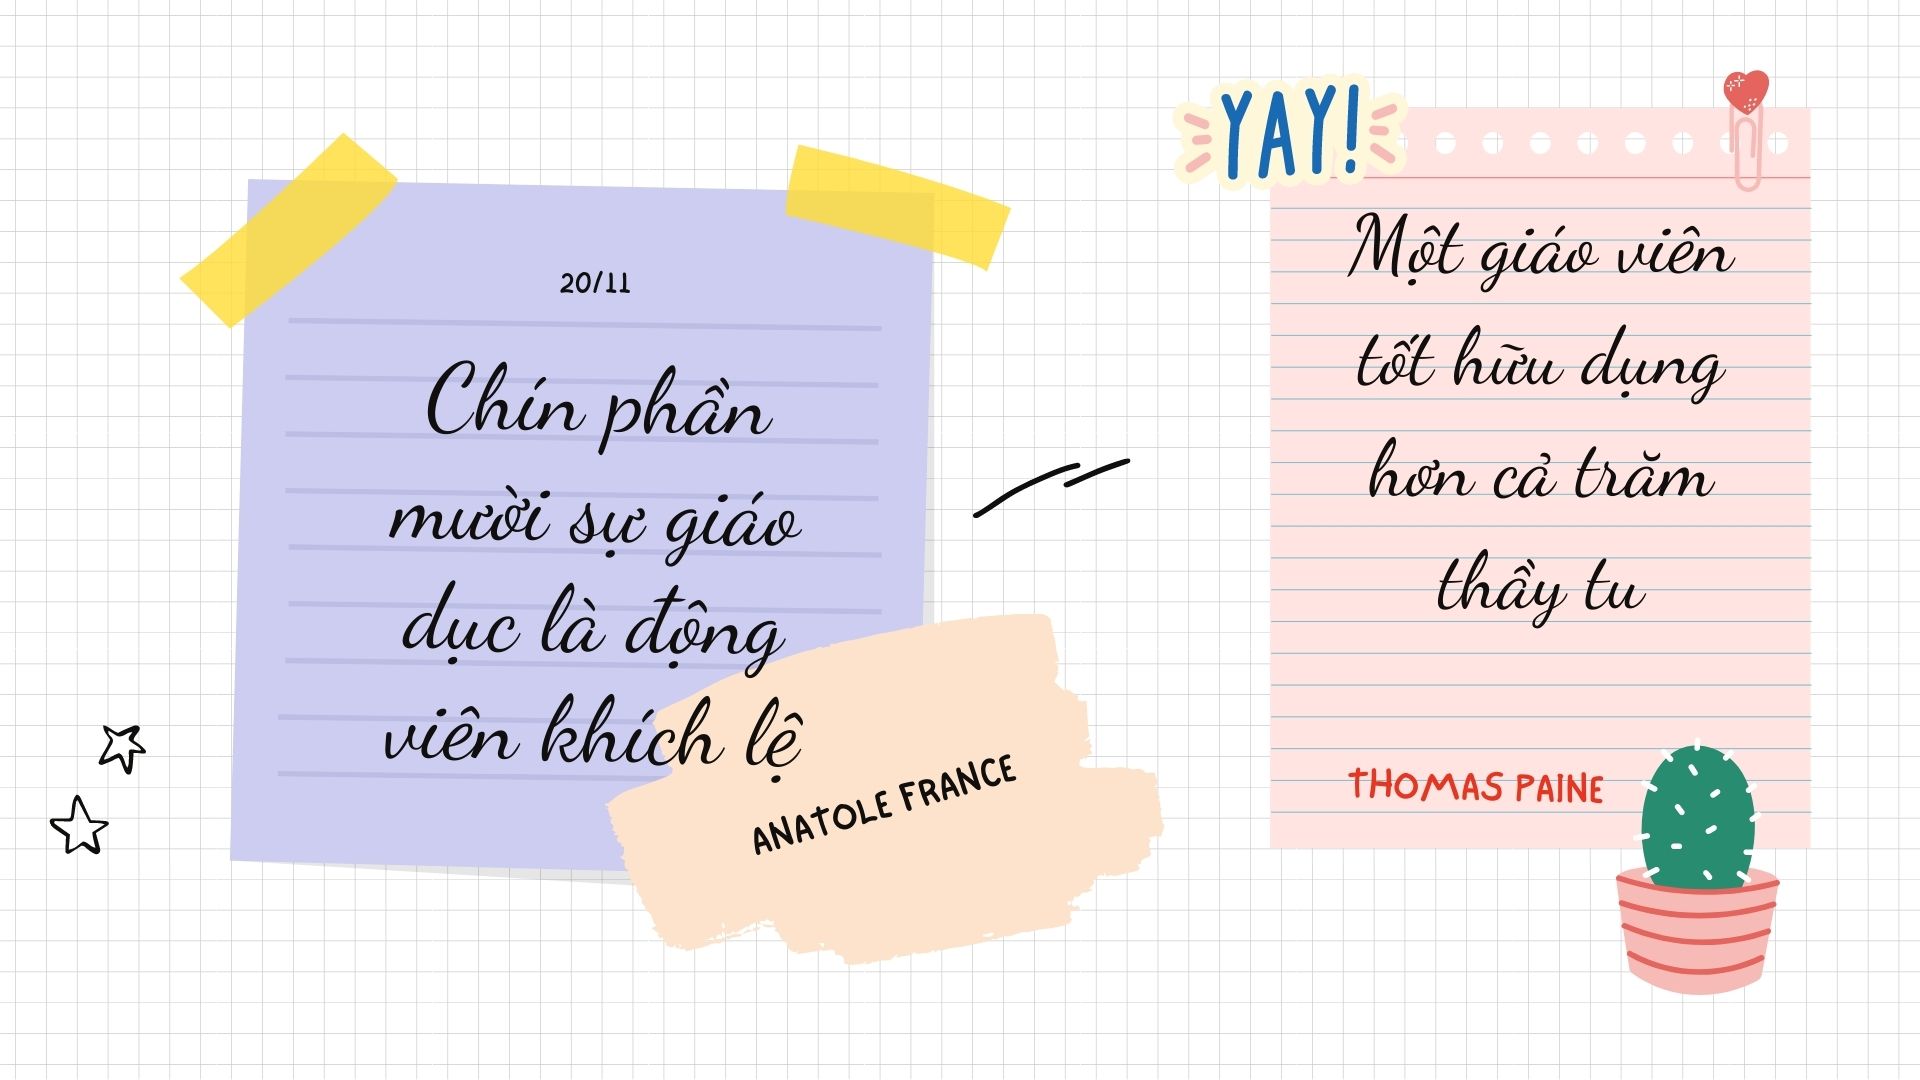 20/11
Chín phần
mười sự giáo
dục là động
viên khích lệ
ANATOLE FRANCE
YAY!
Một giáo viên
tốt hữu dụng
hơn cả trăm
thầy tu
THOMAS PAINE